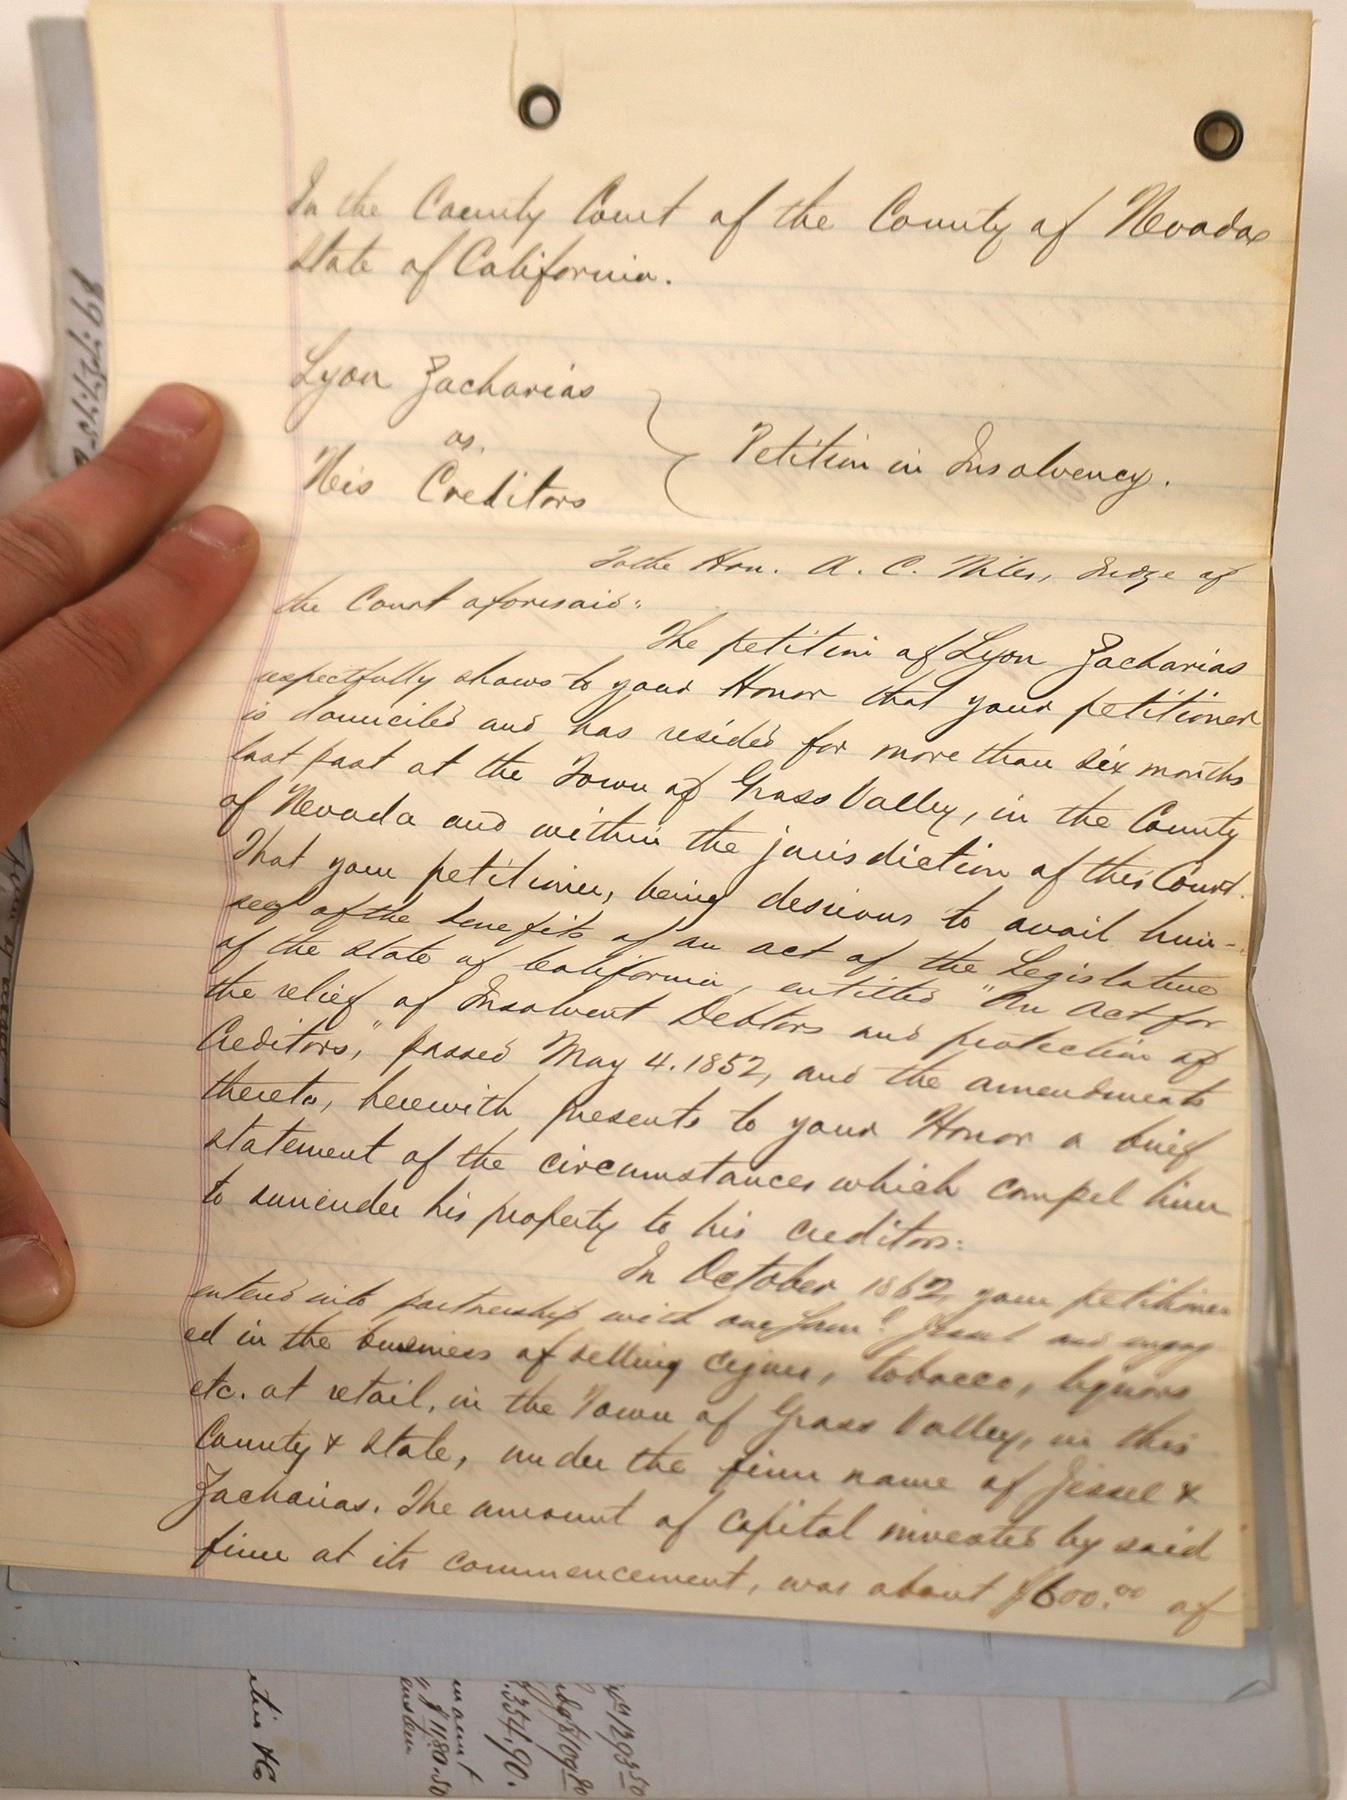 In the County Court of the County of Nevada
State of California.
Lyon Zacharias
vs.
His Creditors
Petition in Insolvency.
To the Hon. A. C. Niles, Judge of
the Court aforesaid:
The petition of Lyon Zacharias
respectfully shows to your Honor that your petitioner
is domiciled and has resided for more than six months
last past at the Town of Grass Valley, in the County
of Nevada and within the jurisdiction of this Court.
That your petitioner, being desirous to avail him-
self of the benefits of an act of the Legislature
of the State of California, entitled "An Act for
the relief of Insolvent Debtors and protection of
Creditors," passed May 4. 1852, and the amendments
thereto, herewith presents to your Honor a brief
statement of the circumstances which compel him
to surrender his property to his creditors:
In October 1862 your petitioner
entered into partnership with one Saml Jessel and engag-
ed in the business of selling cigars, tobacco, liquors
etc. at retail, in the Town of Grass Valley, in this
County & State, under the firm name of Jessel &
Zacharias. The amount of capital invested by said
firm at its commencement, was about $600.00 of
334.90.
$1180.50